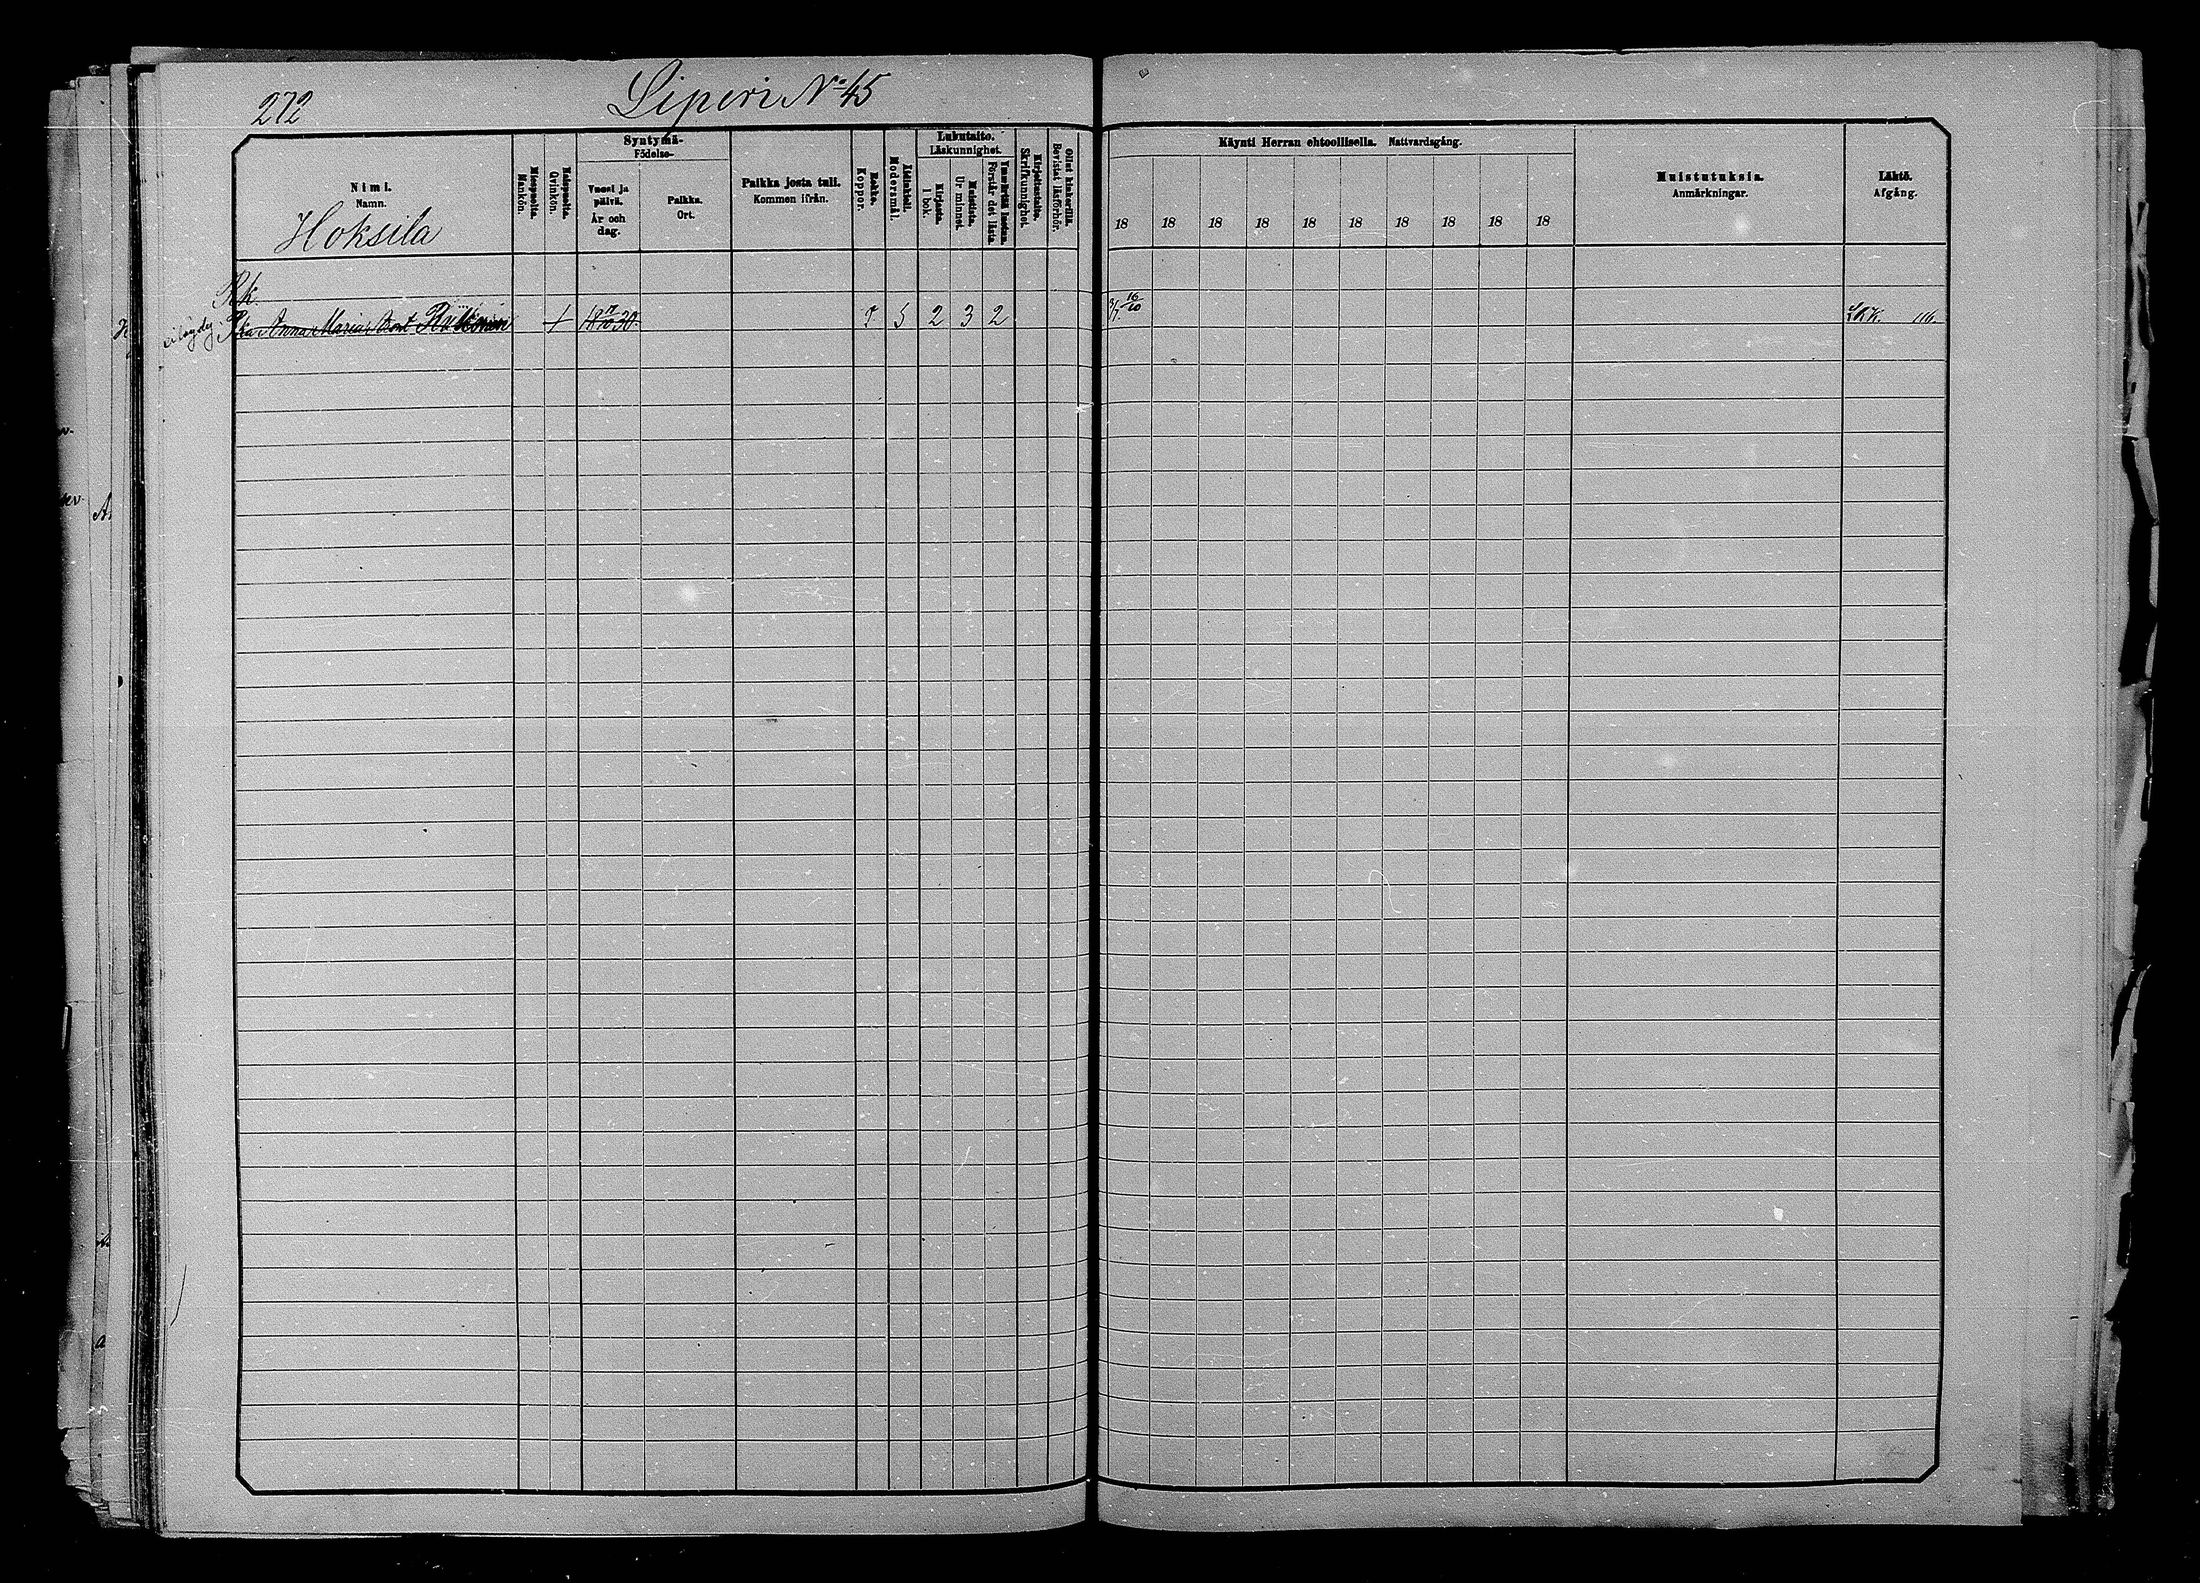 272
Liperi No 45
Nimi.
Namn.
Hoksila
Miespuolia.
Mankön.
Naispuolia.
Qvinkön.
Syntymä-
Födelse-
Vuosi ja
päivä.
År och
dag.
Paikka.
Ort.
Paikka josta tuli.
Kommen ifrån.
Rokko.
Koppor.
Äidinkieli.
Modersmål.
Lukutaito.
Läskunnighet.
Kirjasta.
I bok.
Muistista.
Ur minnet.
Ymmärtää luetun.
Förstår det lästa.
Kirjoitustaito.
Skrifkunnighet.
Ollut kinkerillä.
Bevistat läsförhör.
Käynti Herran ehtoollisella. Nattvardsgång.
18 18 18 18 18 18 18 18 18 18
Muistutuksia.
Anmärkningar.
Lähtö.
Afgång.
Rk.
Anna Maria 30. 5 2 3 2 16/10 116.